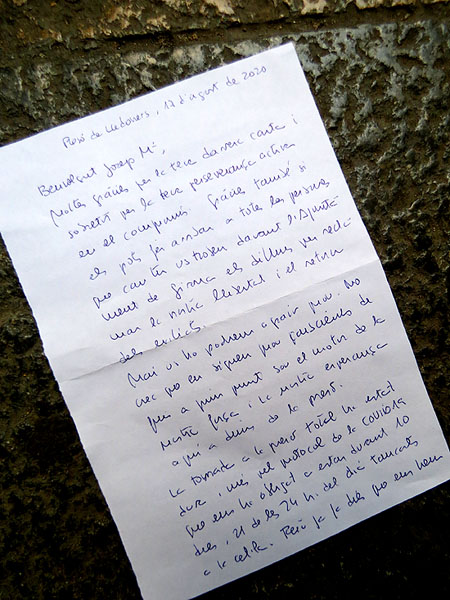 Presó de Lledoners, 17 d'agost de 2020
Benvolgut Josep Mª,
Moltes gràcies per la teva darrera carta i
sobretot per la teva perseverança activa
en el compromís. Gràcies també si
els pots fer arribar a totes les persones
que canteu us trobeu davant l'Ajunta
ment de Girona els dilluns per recla
mar la nostra llibertat i el retorn
dels exiliats.
Mai us ho podrem agrair prou. No
crec que en sigueu prou conscients de
fins a quin punt sou el motor de la
nostra força i la nostra esperança
aquí a dins de la presó.
La tornada a la presó total ha estat
dura, més pel protocol de la COVID19
que ens ha obligat a estar durant 10
dies, 21 de les 24 h. del dia tancats
a la cel·la. Però ja fa dies que ens hem